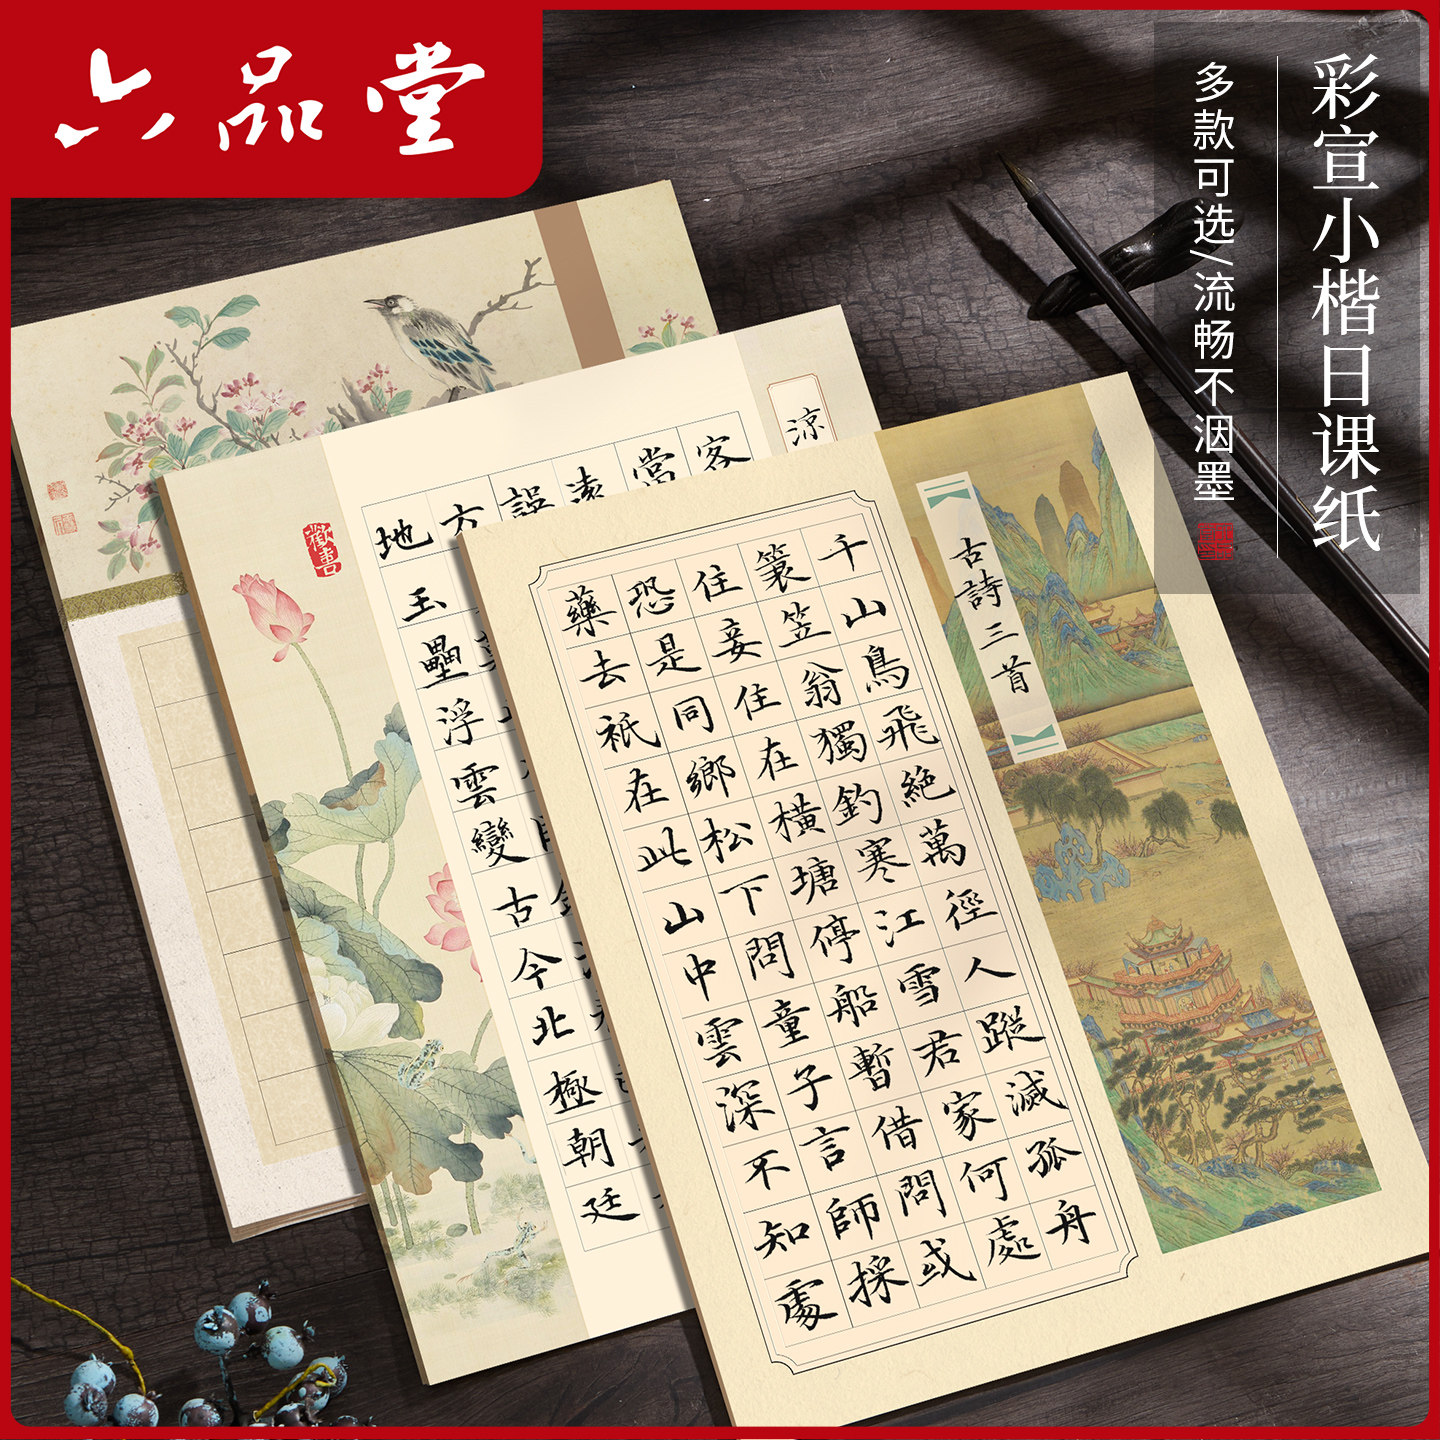 六品堂
彩宣小楷日课纸
多款可选/流畅不洇墨
古詩三首
千山鳥飛絕萬徑人蹤滅孤舟
簑笠翁獨釣寒江雪君家何處
住妾住在橫塘停船暫借問或
恐是同鄉松下問童子言師採
藥去衹在此山中雲深不知處
涼
客
當
遠
誤
方
地玉壘浮雲變古今北極朝廷